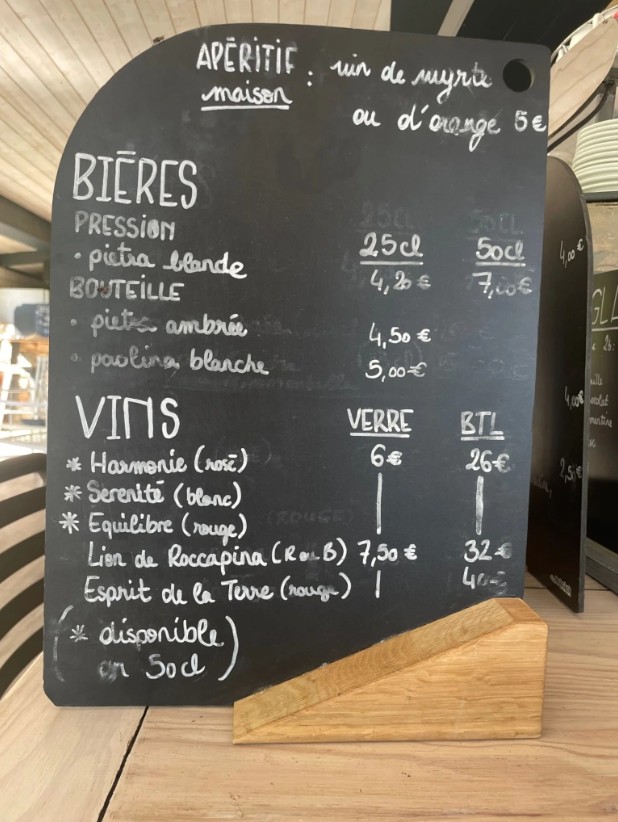 APĒRITIF : vin de myrte
maison
ou d'orange 5€
BIĒRES
PRESSION 25cl 50cl
• pietra blonde 4,20€ 7,00€
BOUTEILLE
• pietra ambrée 4,50€
• paolina blanche 5,00€
VINS VERRE BTL
* Harmonie (rosé) 6€ 26€
* Serenité (blanc) | |
* Equilibre (rouge) | |
Lion de Roccapina (R ou B) 7,50€ 32€
Esprit de la Terre (rouge) | 40€
(* disponible
en 50cl)
4,00€
4,00€
2,50€